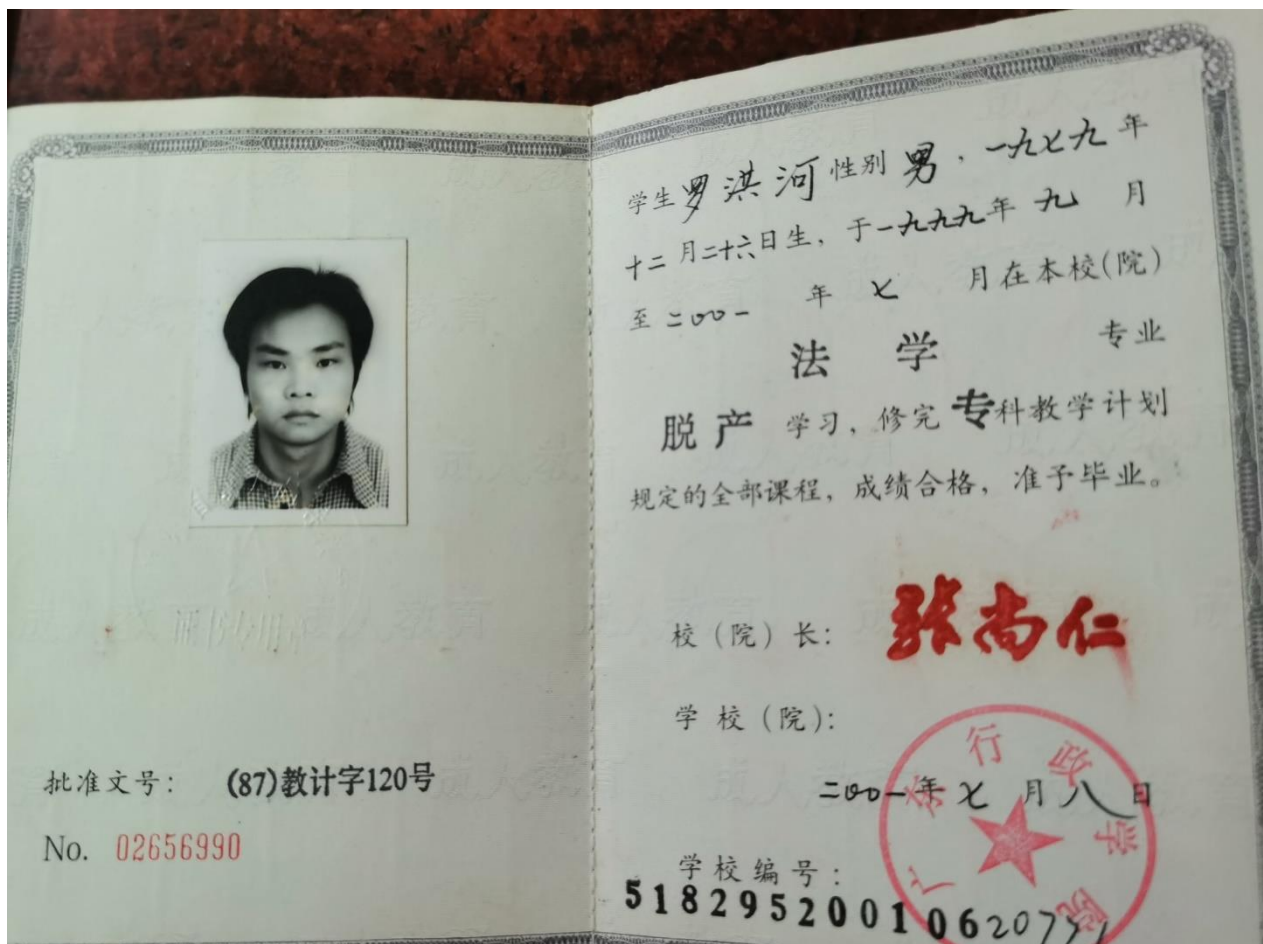 批准文号： (87)教计字120号
No. 02656990
学生罗洪河性别男，一九七九年
十二月二十六日生，于一九九九年九月
至二〇〇一年七月在本校(院)
法学专业
脱产学习，修完专科教学计划
规定的全部课程，成绩合格，准予毕业。
校（院）长： 张尚仁
学校（院）：
广东行政学院
二〇〇一年七月八日
学校编号：
518295200106